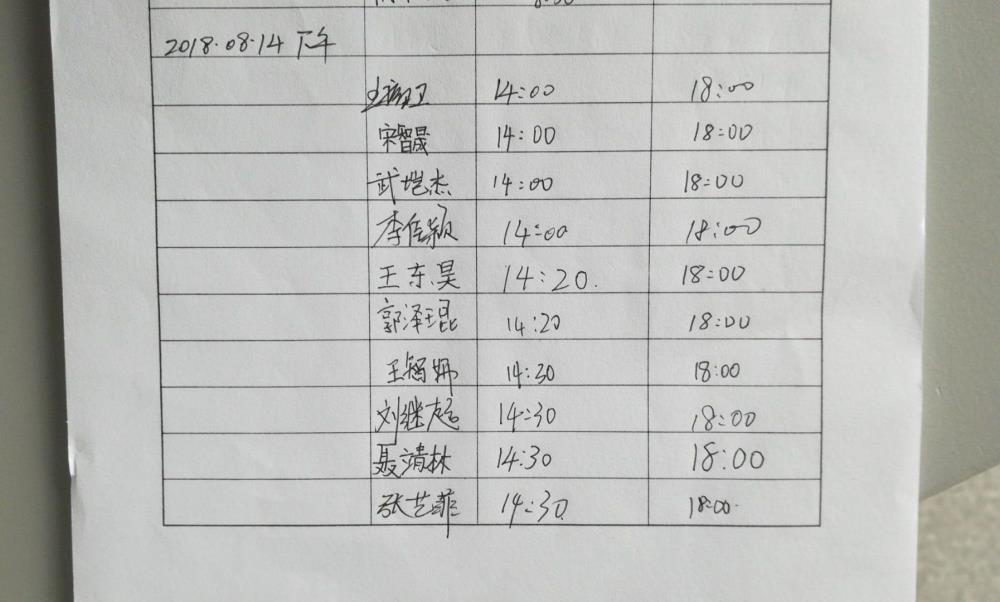 8:30
2018.08.14 下午
14:00 18:00
宋智晟 14:00 18:00
武垲杰 14:00 18:00
李佳颖 14:00 18:00
王东昊 14:20. 18:00
郭泽琨 14:20 18:00
王 14:30 18:00
刘继超 14:30 18:00
聂靖林 14:30 18:00
张艺菲 14:30. 18:00.